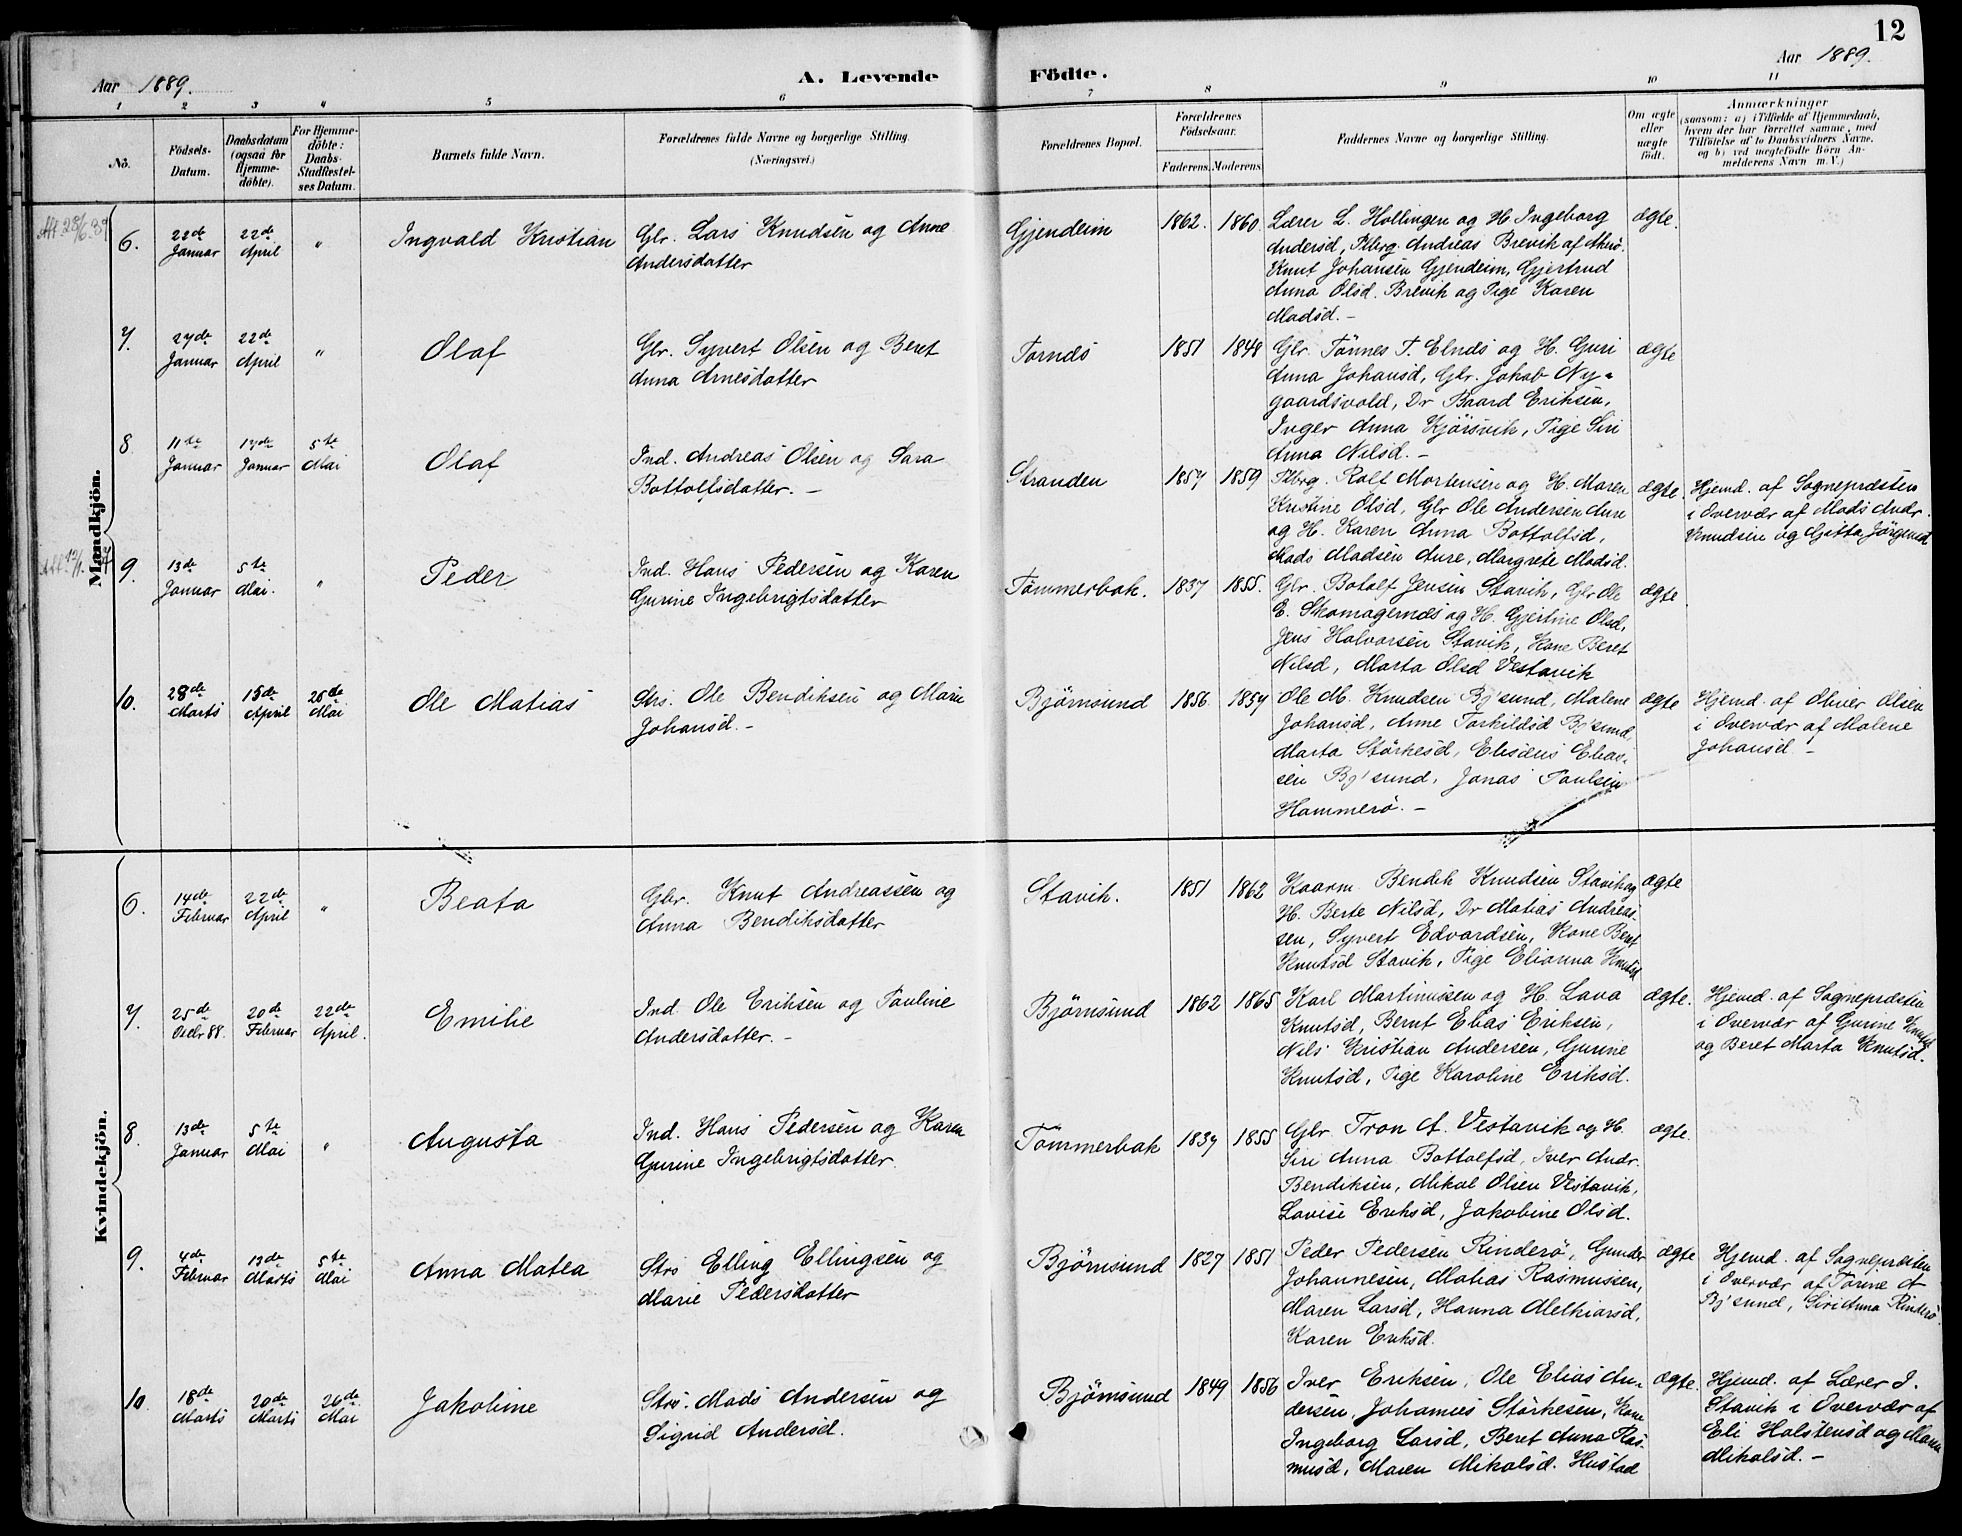 12
Aar 1889.
A. Levende
Födte.
Aar 1889.
1 2 3 4 5 6 7 8 9 10 11
No.
Födsels-
Datum.
Daabsdatum
(ogsaa for
Hjemme-
döbte).
For Hjemme-
döbte:
Daabs-
Stadfæstel-
ses Datum.
Barnets fulde Navn.
Forældrenes fulde Navne og borgerlige Stilling
(Næringsvei.)
Forældrenes Bopæl.
Forældrenes
Födselsaar.
Faderens. Moderens.
Faddernes Navne og borgerlige Stilling.
Om ægte
eller
uægte
födt.
Anmærkninger
(saasom: a) i Tilfælde af Hjemmedaab,
hvem der har forrettet samme, med
Tilföielse af to Daabsvidners Navne,
og b) ved uægtefödte Börn An-
melderens Navn m. V.)
Mandkjön.
6.
22de
Januar
22de
April
"
Ingvald Kristian
Glr. Lars Knudsen og Anne
Andersdatter
Gjendeim
1862. 1860
Lærer L. Hollingen og H. Ingeborg
Andersd, Plbrg. Andreas Brevik af Akrö.
Knut Johansen Gjendeim, Gjertrud
Anna Olsd. Brevik og Pige Karen
Madsd. –
ægte.
7.
27de
Januar
22de
April
"
Olaf
Glr. Syvert Olsen og Beret
Anna Arnesdatter
Tornds
1851 1848
Glr. Tönnes T. Elnds og H. Guri
Anna Johansd, Glr. Jakob Ny-
gaardsvold, Dr Baard Eriksen,
Inger Anna Kjörsvik, Pige Siri
Anna Nilsd. –
ægte
8
11te
Januar
17de
Januar
5te
Mai
Olaf
Ind. Andreas Olsen og Sara
Bottolfsdatter. –
Stranden
1857 1859
Plbrg. Rolf Mortensen og H. Maren
Kristine Olsd, Glr Ole Andersen Aure
og H. Karen Anna Bottolfsd,
Mads Madsen Aure, Margrete Madsd.
ægte.
Hjemd. af Sognepræsten
i Overvær af Mads Andr.
Knudsen og Gitta Jörgensd
9.
13de
Januar
5te
Mai.
"
Peder
Ind. Hans Pedersen og Karen
Gurine Ingebrigtsdatter
Tømmerbak.
1837 1855.
Glr. Botolf Jensen Stavik, Glr Ole
E. Skomagernæs og H. Gjertine Olsd,
Jens Halvorsen Stavik, Kone Beret
Nilsd, Marta Olsd Vestavik
ægte
10.
28de
Marts
15de
April
26de
Mai
Ole Matias
Strs. Ole Bendiksen og Marie
Johansd. –
Bjørnsund
1856 1857
Ole M. Knudsen Bj'sund, Malene
Johansd, Anne Torkildsd Bj'sund,
Marta Störkesd, Elisæus Elias-
sen Bj'sund, Jonas Paulsen
Hammerö. –
ægte
Hjemd. af Oliver Olsen
i Overvær af Malene
Johansd –
Kvindekjön.
6.
14de
Februar
22de
April
"
Beata
Gbr. Knut Andreassen og
Anna Bendiksdatter
Stavik.
1851 1862
Kaarm. Bendik Knudsen Stavik og
H. Berte Nilsd, Dr Matias Andreas-
sen, Syvert Edvardsen, Kone Beret
Knutsd Stavik, Pige Elianna Knutsd
ægte
7.
25de
Decbr 88.
20de
Februar
22de
April.
Emilie
Ind Ole Eriksen og Pauline
Andersdatter. –
Bjørnsund
1862 1865
Karl Martinussen og H. Lava
Knutsd, Bernt Elias Eriksen,
Nils Kristian Andersen, Gurine
Knutsd, Pige Karoline Eriksd.
ægte.
Hjemd. af Sognepræsten
i Overvær af Gurine Knutsd
og Beret Marta Knutsd.
8.
13de
Januar
5te
Mai
"
Augusta
Ind. Hans Pedersen og Karen
Gurine Ingebrigtsdatter.
Tömmerbak
1837 1855
Glr Tron A. Vestavik og H.
Siri Anna Bottolfsd, Iver Andr.
Bendiksen, Mikal Olsen Vestavik,
Lovise Eriksd, Jakobine Olsd.
ægte.
9.
4de
Februar
13de
Marts
5te
Mai
Anna Matea
Strs Elling Ellingsen og
Marie Pedersdatter
Bjørnsund
1827 1851
Peder Pedersen Rinderö, Gunder
Johannesen, Matias Rasmussen,
Maren Larsd, Hanna Melkiorsd,
Karen Eriksd.
ægte
Hjemd. af Sognepræsten
i Overvær af Torine A
Bj'sund, Siri Anna Rinderö.
10.
18de
Marts
20de
Marts
26de
Mai
Jakobine
Strs. Mads Andersen og
Sigrid Andersd.
Bjørnsund
1849 1856
Iver Eriksen, Ole Elias An-
dersen, Johannes Störkesen, Kone
Ingeborg Larsd, Beret Anna Ras-
musd, Maren Mikalsd. Hustad
ægte.
Hjemd. af Lærer J.
Stavik i Overvær af
Eli Halstensd og Maren
Mikalsd. –